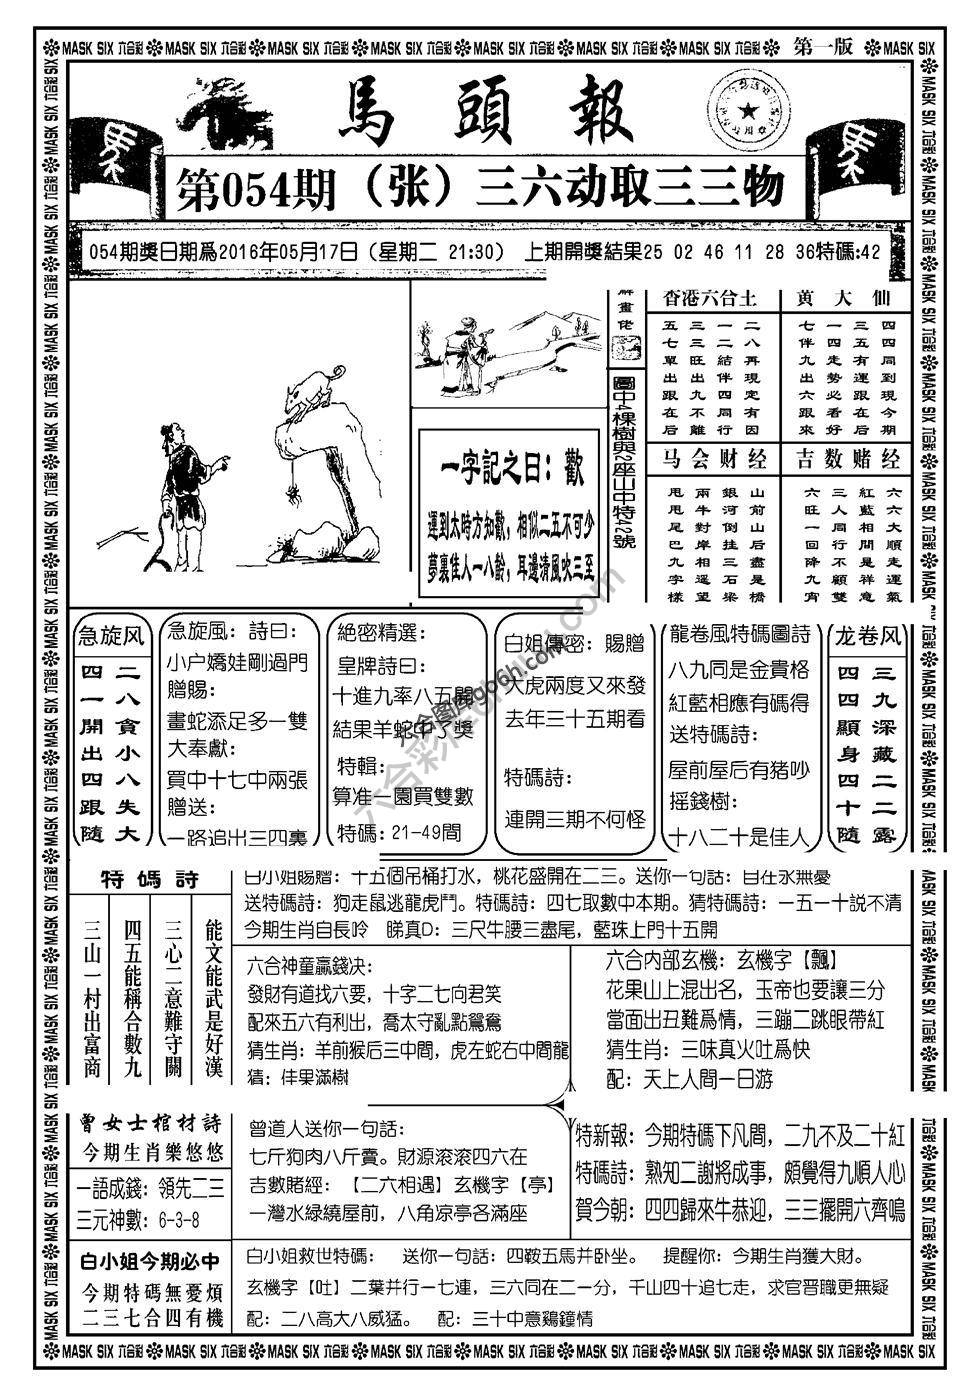 MASK SIX 六合彩 MASK SIX 六合彩 MASK SIX 六合彩 MASK SIX 六合彩 MASK SIX 六合彩 MASK SIX 六合彩 MASK SIX 六合彩 第一版 MASK SIX
馬頭報
第054期（张）三六动取三三物
054期獎日期爲2016年05月17日（星期二 21:30） 上期開獎結果25 02 46 11 28 36特碼:42
解畫佬
圖中4棵樹與2座山中特42號
一字記之日：歡
運到太時方知歡，相似二五不可少
夢裏佳人一八齡，耳邊清風吹三至
香港六合土
二八再現定有因
一二結伴四同行
三三旺出九不離
五七單出跟在后
黄大仙
四四同到現今期
三五有運跟在后
一四走勢必看好
七伴九出六跟來
马会财经
山前山后盡是橋
銀河倒挂三石梁
兩牛對岸相遥望
甩甩尾巴九字樣
吉数赌经
六六大順走運氣
紅藍相間是祥意
三人同行不顧雙
六旺一回降九宵
急旋风
二八貪小八失大
四一開出四跟隨
急旋風：詩曰：
小户嬌娃剛過門
贈賜：
畫蛇添足多一雙
大奉獻：
買中十七中兩張
贈送：
一路追出三四裏
絶密精選：
皇牌詩曰：
十進九率八五開
結果羊蛇中了獎
特輯：
算准一園買雙數
特碼：21-49間
白姐傳密：賜贈
大虎兩度又來發
去年三十五期看
特碼詩：
連開三期不何怪
龍卷風特碼圖詩
八九同是金貴格
紅藍相應有碼得
送特碼詩：
屋前屋后有猪吵
摇錢樹：
十八二十是佳人
龙卷风
三九深藏二二露
四四顯身四十隨
特碼詩
能文能武是好漢
三心二意難守關
四五能稱合數九
三山一村出富商
白小姐賜贈：十五個吊桶打水，桃花盛開在二三。送你一句話：自在永無憂
送特碼詩：狗走鼠逃龍虎鬥。特碼詩：四七取數中本期。猜特碼詩：一五一十説不清
今期生肖自長呤 睇真D：三尺牛腰三盡尾，藍珠上門十五開
六合神童贏錢决：
發財有道找六要，十字二七向君笑
配來五六有利出，喬太守亂點鴛鴦
猜生肖：羊前猴后三中間，虎左蛇右中間龍
猜：佳果滿樹
六合内部玄機：玄機字【飄】
花果山上混出名，玉帝也要讓三分
當面出丑難爲情，三蹦二跳眼帶紅
猜生肖：三味真火吐爲快
配：天上人間一日游
曾女士棺材詩
今期生肖樂悠悠
一語成錢：領先二三
三元神數：6-3-8
曾道人送你一句話：
七斤狗肉八斤賣。財源滚滚四六在
吉數賭經：【二六相遇】玄機字【亭】
一灣水緑繞屋前，八角凉亭各滿座
特新報：今期特碼下凡間，二九不及二十紅
特碼詩：熟知二謝將成事，頗覺得九順人心
賀今朝：四四歸來牛恭迎，三三擺開六齊鳴
白小姐今期必中
今期特碼無憂煩
二三七合四有機
白小姐救世特碼： 送你一句話：四鞍五馬并卧坐。 提醒你：今期生肖獲大財。
玄機字【吐】二葉并行一七連，三六同在二一分，千山四十追七走，求官晋職更無疑
配：二八高大八威猛。 配：三十中意鷄鐘情
MASK SIX 六合彩 MASK SIX 六合彩 MASK SIX 六合彩 MASK SIX 六合彩 MASK SIX 六合彩 MASK SIX 六合彩 MASK SIX 六合彩 MASK SIX 六合彩 MASK SIX